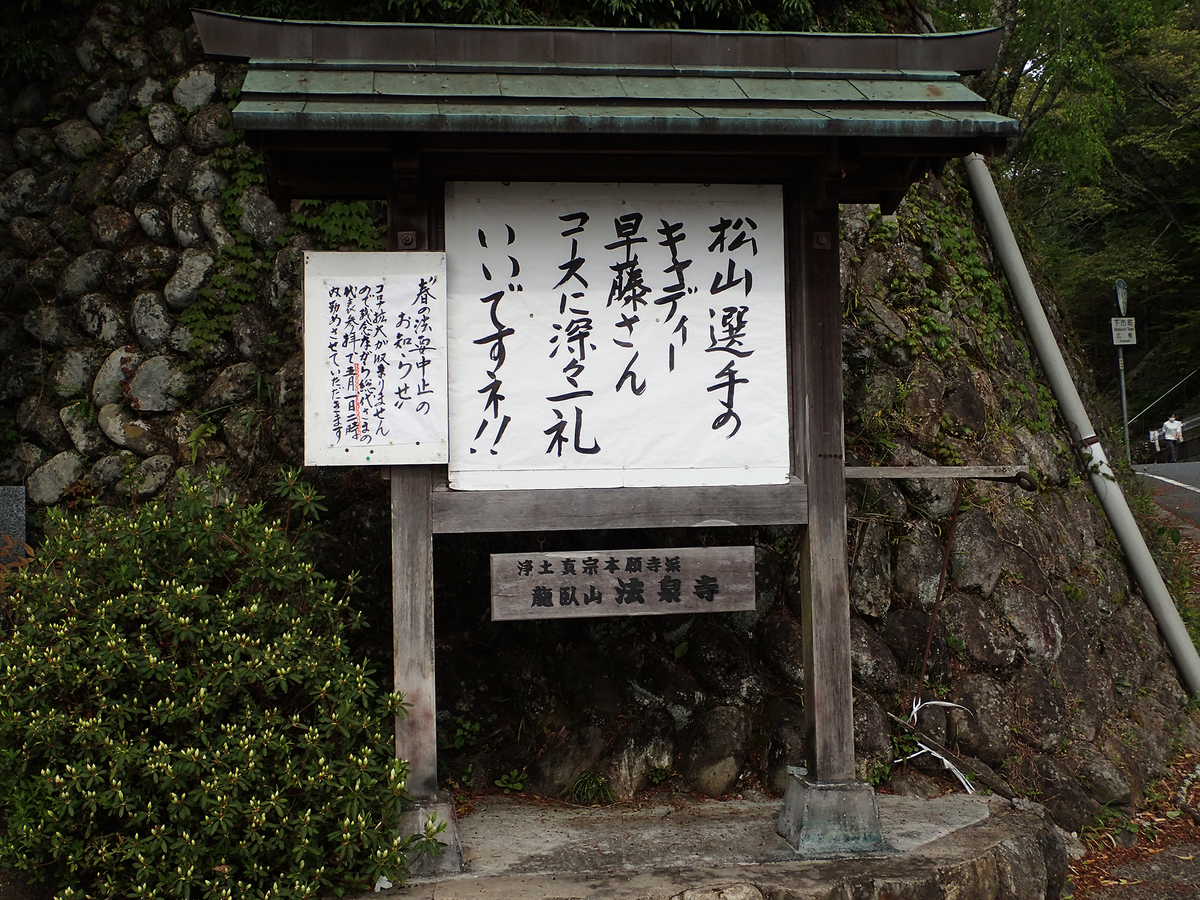 松山選手の
キャディー
早藤さん
コースに深々一礼
いいですネ!!
"春の法要中止の
お知らせ"
コロナ拡大が収まりません
ので残念乍ら総代さまの
代表参拝で五月一日二時
内勤めさせていただきます
浄土真宗本願寺派
龍臥山 法泉寺
下市町